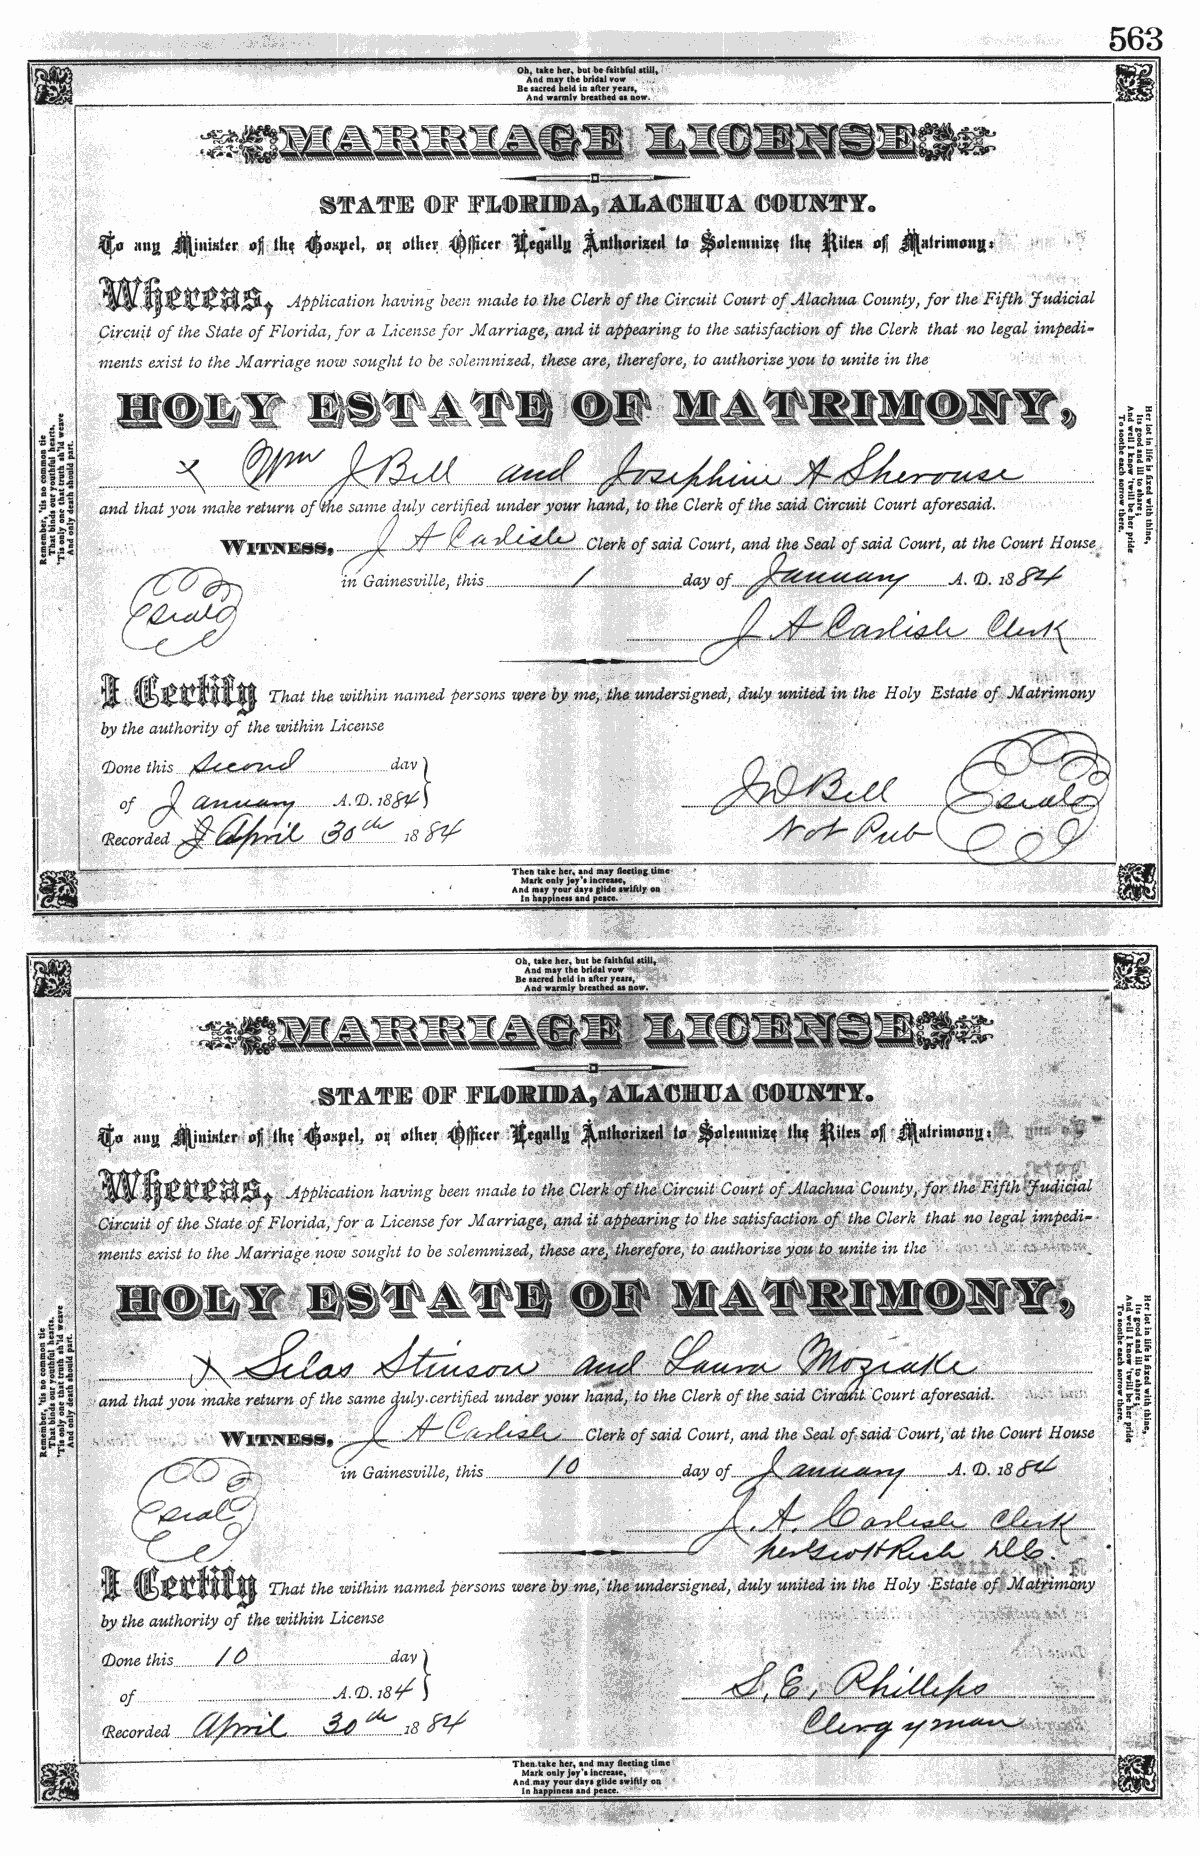 563
Oh, take her, but be faithful still,
And may the bridal vow
Be sacred held in after years,
And warmly breathed as now.
MARRIAGE LICENSE
STATE OF FLORIDA, ALACHUA COUNTY.
To any Minister of the Gospel, or other Officer Legally Authorized to Solemnize the Rites of Matrimony:
Whereas, Application having been made to the Clerk of the Circuit Court of Alachua County, for the Fifth Judicial
Circuit of the State of Florida, for a License for Marriage, and it appearing to the satisfaction of the Clerk that no legal impedi-
ments exist to the Marriage now sought to be solemnized, these are, therefore, to authorize you to unite in the
HOLY ESTATE OF MATRIMONY,
x Wm J Bell and Josephine A Sherouse
and that you make return of the same duly certified under your hand, to the Clerk of the said Circuit Court aforesaid.
WITNESS, J A Carlisle Clerk of said Court, and the Seal of said Court, at the Court House
in Gainesville, this 1 day of January A. D. 1884
Seal
J A Carlisle Clerk
I Certify That the within named persons were by me, the undersigned, duly united in the Holy Estate of Matrimony
by the authority of the within License
Done this Second day
of January A.D. 1884
J W Bell
Seal
Recorded April 30th 1884
Not Pub
Then take her, and may fleeting time
Mark only joy's increase,
And may your days glide swiftly on
In happiness and peace.
Remember, 'tis no common tie
That binds our youthful hearts,
'Tis only one that truth sh'ld weave
And only death should part.
Her lot in life is fixed with thine,
Its good and ill to share;
And well I know 'twill be her pride
To soothe each sorrow there.
Oh, take her, but be faithful still,
And may the bridal vow
Be sacred held in after years,
And warmly breathed as now.
MARRIAGE LICENSE
STATE OF FLORIDA, ALACHUA COUNTY.
To any Minister of the Gospel, or other Officer Legally Authorized to Solemnize the Rites of Matrimony:
Whereas, Application having been made to the Clerk of the Circuit Court of Alachua County, for the Fifth Judicial
Circuit of the State of Florida, for a License for Marriage, and it appearing to the satisfaction of the Clerk that no legal impedi-
ments exist to the Marriage now sought to be solemnized, these are, therefore, to authorize you to unite in the
HOLY ESTATE OF MATRIMONY,
x Silas Stinson and Laura Moziake
and that you make return of the same duly certified under your hand, to the Clerk of the said Circuit Court aforesaid.
WITNESS, J A Carlisle Clerk of said Court, and the Seal of said Court, at the Court House
in Gainesville, this 10 day of January A. D. 1884
Seal
J. A. Carlisle Clerk
per Geo H Rich D.C.
I Certify That the within named persons were by me, the undersigned, duly united in the Holy Estate of Matrimony
by the authority of the within License
Done this 10 day
of A.D. 184
S. E. Phillips
Recorded April 30th 1884
Clergyman
Then take her, and may fleeting time
Mark only joy's increase,
And may your days glide swiftly on
In happiness and peace.
Remember, 'tis no common tie
That binds our youthful hearts,
'Tis only one that truth sh'ld weave
And only death should part.
Her lot in life is fixed with thine,
Its good and ill to share;
And well I know 'twill be her pride
To soothe each sorrow there.